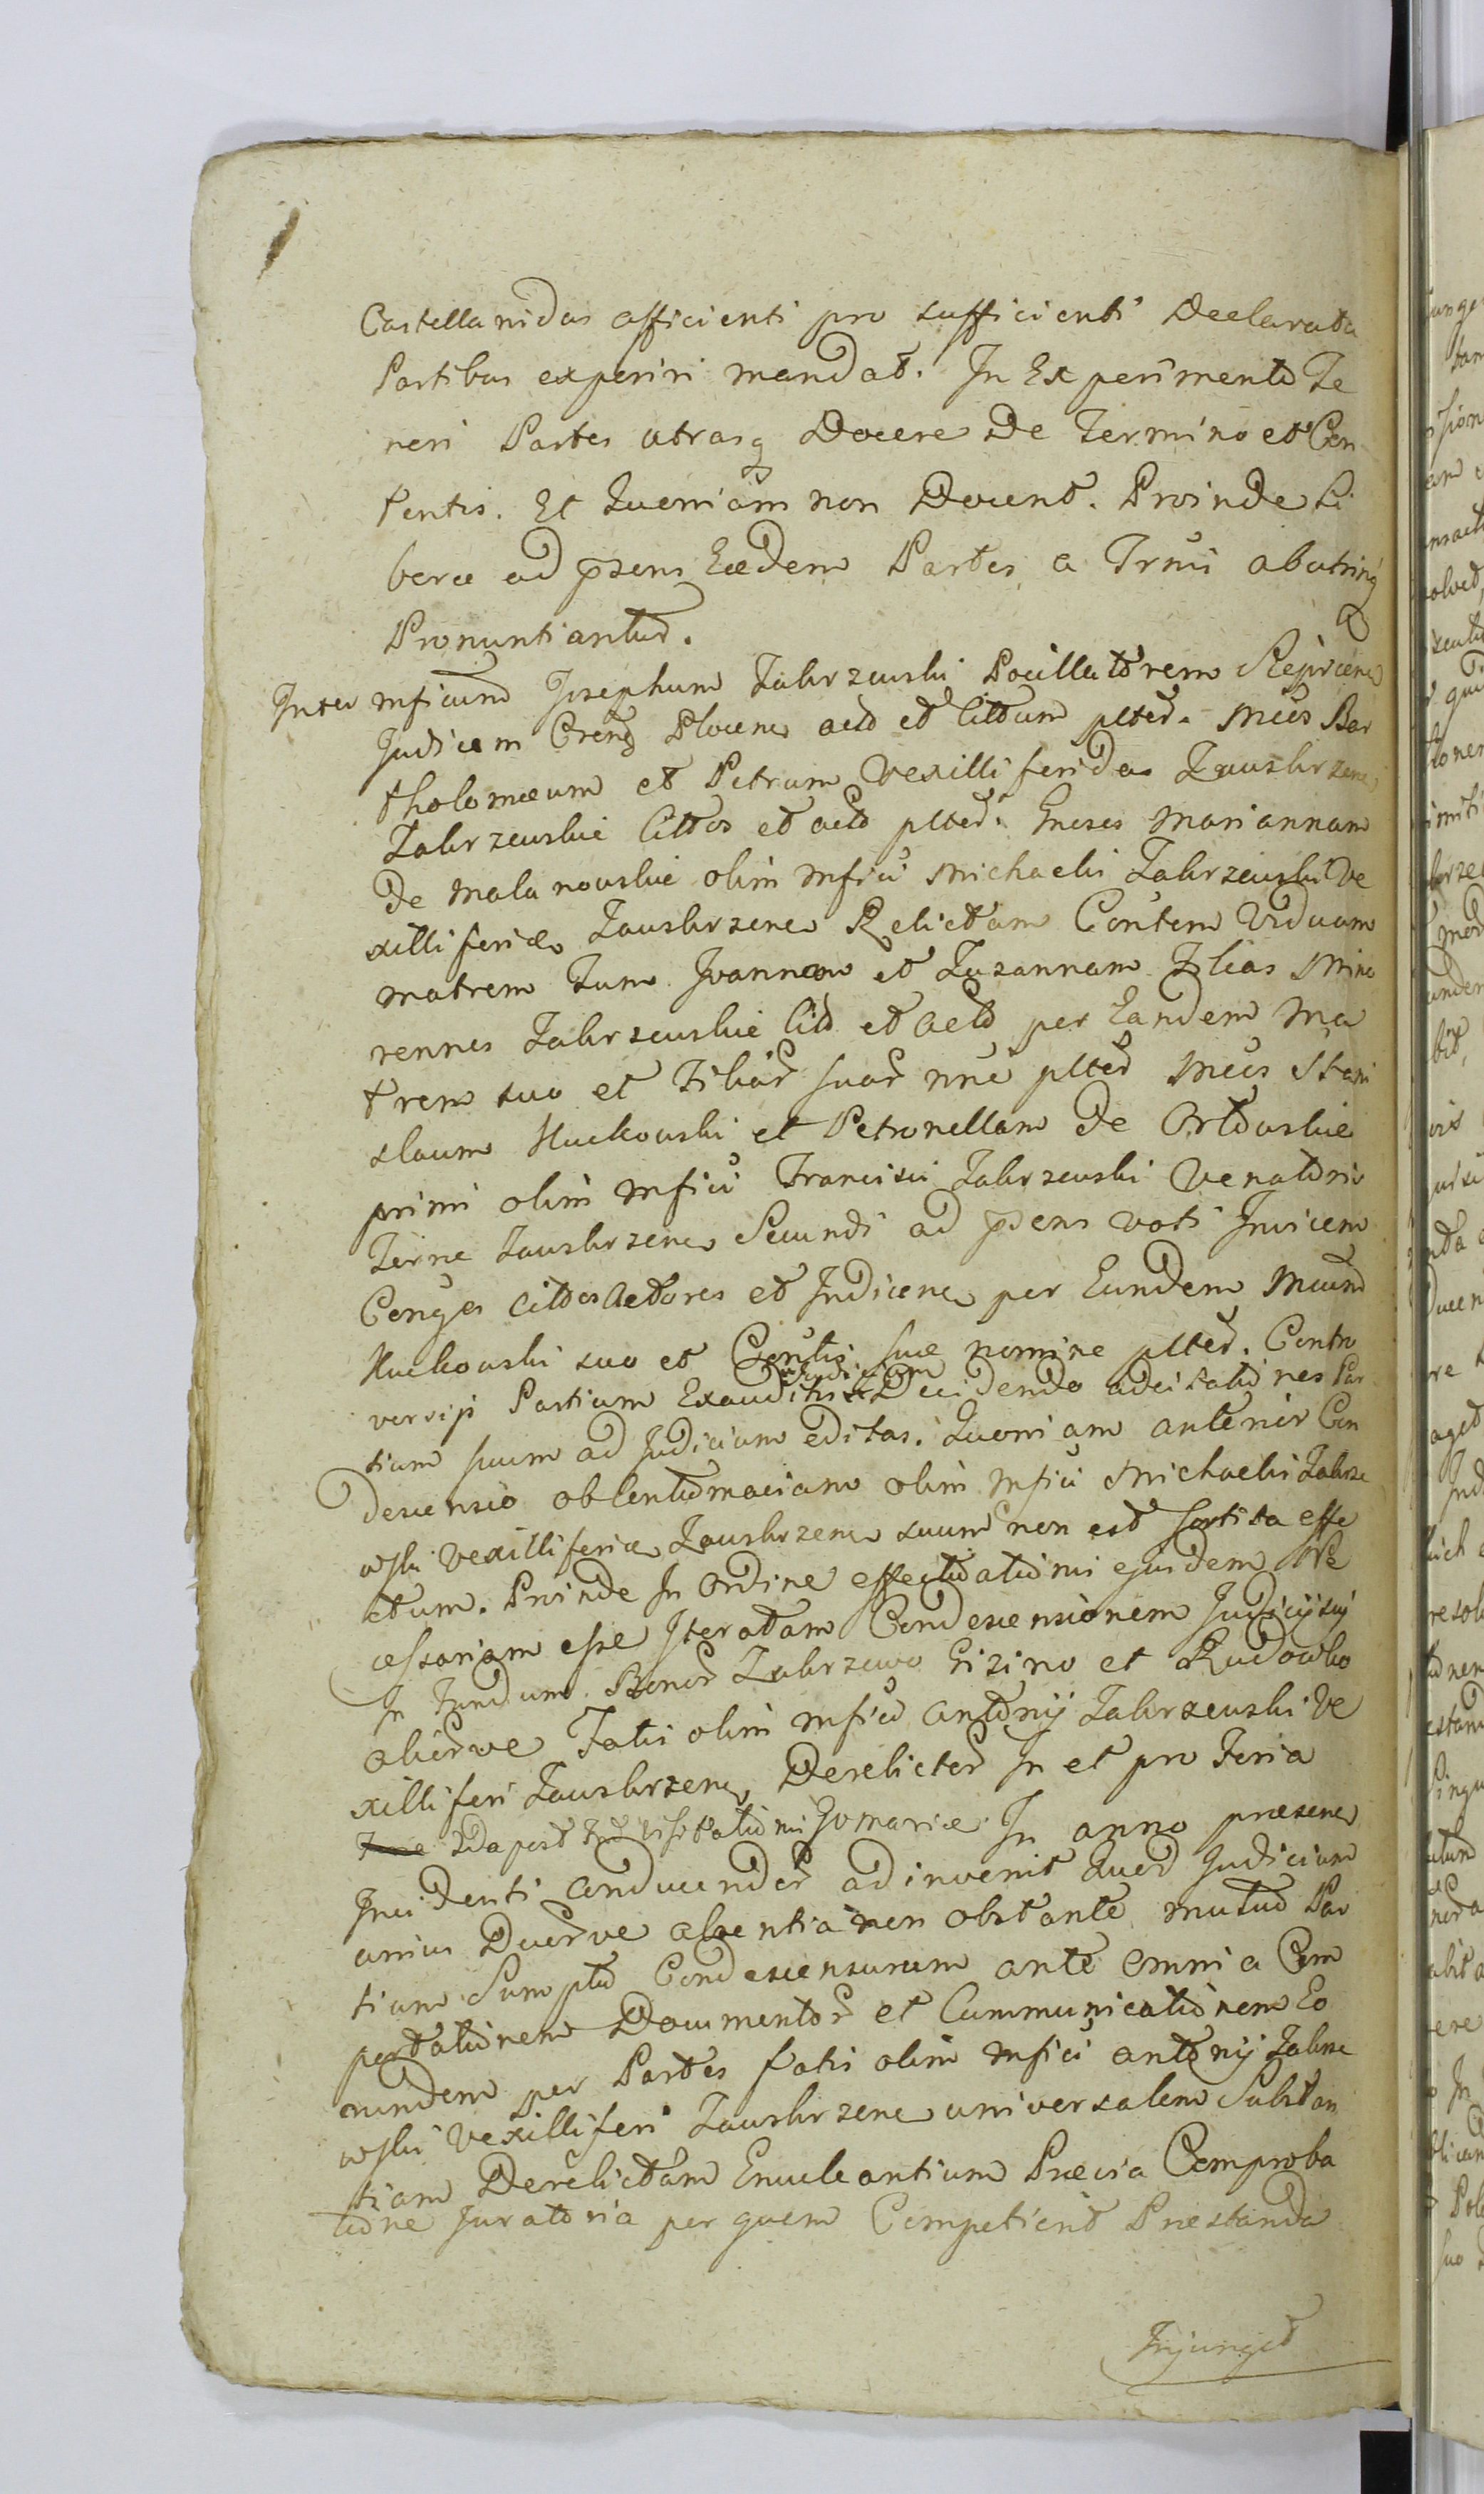 Castellanidas afficienti pro sufficienti Declarata
Partibus experiri mandat. In Experimento Te
neri Partes utrasq Docere De Termino et Con
tentis. Et Quoniam non Docent. Proinde Li
bera ad psens Eædem Partes a Trmi abutrinq
Pronuntiantur.
Inter mficum Josephum Zakrzewski Pocillatorem
Judicem Plocen. act et littum plted. Mcos Bar
tholomæum et Petrum Vexilliferidas Zawskrzen
Zakrzewskie Cittos et act plted. Gnesas Mariannam
De Malanowskie olim mfici Michaelis Zakrzewski Ve
xilliferidæ Zawskrzenen Relictam Contem Viduam
matrem Tum Joannem et Zuzannam Filias Mino
rennes Zakrzewskie Citt et act per Eandem Ma
trem suo et Filiar suar nne plted Mcos Stani
slaum Huckowski et Petronellam De Orłowskie
primi olim mfici Francisci Zakrzewski Venatoris
Terræ Zawskrzenen Secundi ad psens voti Invicem
Conges Cittos Actores et Indicene per Eundem Mcum
Huckowski suo et Contis suæ nomine plted. Contro
versijs Partium Exauditis Decidendo adcitationes Par
tium suum ad Judicium editas. Quoniam anterior Con
descensio ob Contumaciam olim mfici Michaelis Zakrze
wski Vexilliferidæ Zawskrzenen suum non est sortita effe
ctum. Proinde In Ordine effectuationis ejusdem Ne
cessariam esse Iteratam Condescensionem Judicij sui
In Fundum Bonor Zakrzewo Gizino et Rudowko
aliorve Fatis olim mfici Antonij Zakrzewski Ve
xilliferi Zawskrzenen Derelictor In et pro Feria
2da post Fm Visitationis Gomariæ In anno præsenen
Incidenti conducendor adinvenit Quod Judicium
unius Duorve absentia non obstante mutuo Par
tium Sumptu Condescensurum ante omnia Com
portationem Documentor et Communicationem Eo
rundem per Partes fatis olim mfici Antonij Zakrze
wski Vexilliferi Zawskrzenen universalem Substan
tiam Derelictam Enucleantium Prævia Comproba
tione Juratoria per quem Competierit Præstanda
Injunget